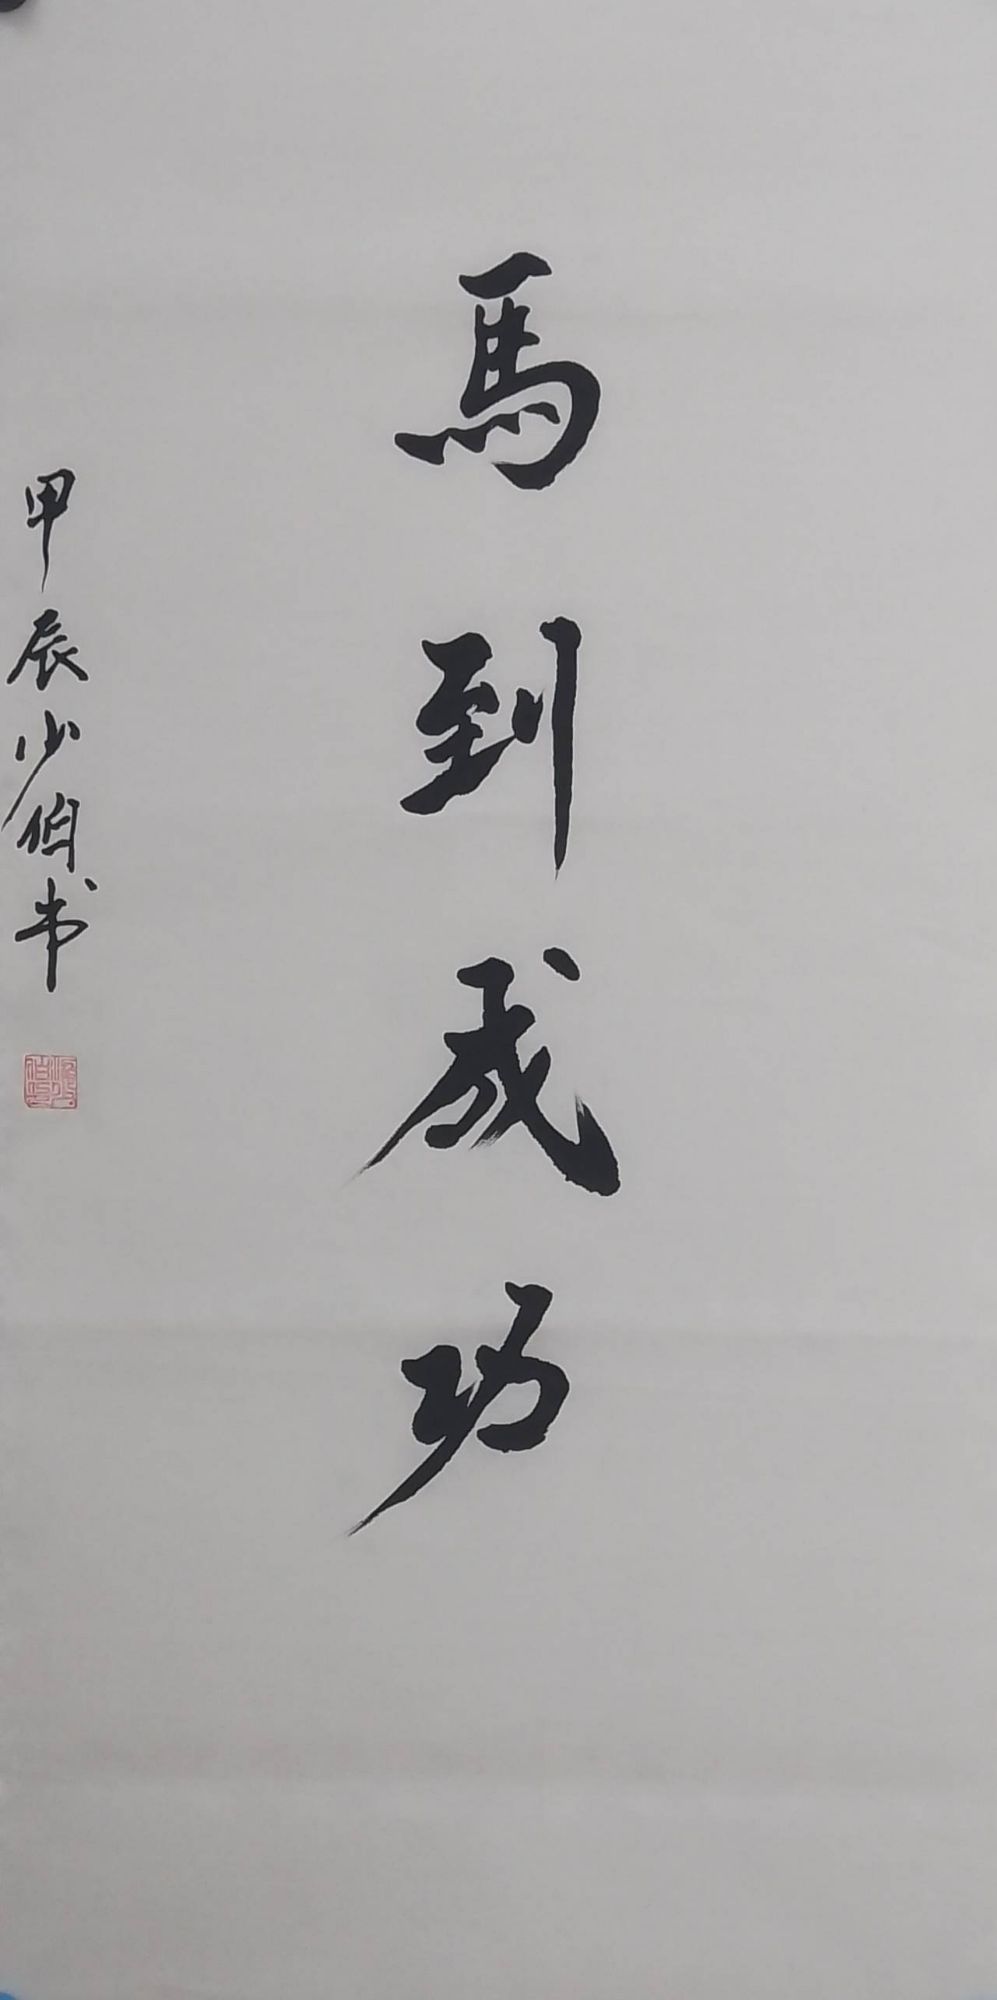 馬到成功
甲辰少伯书